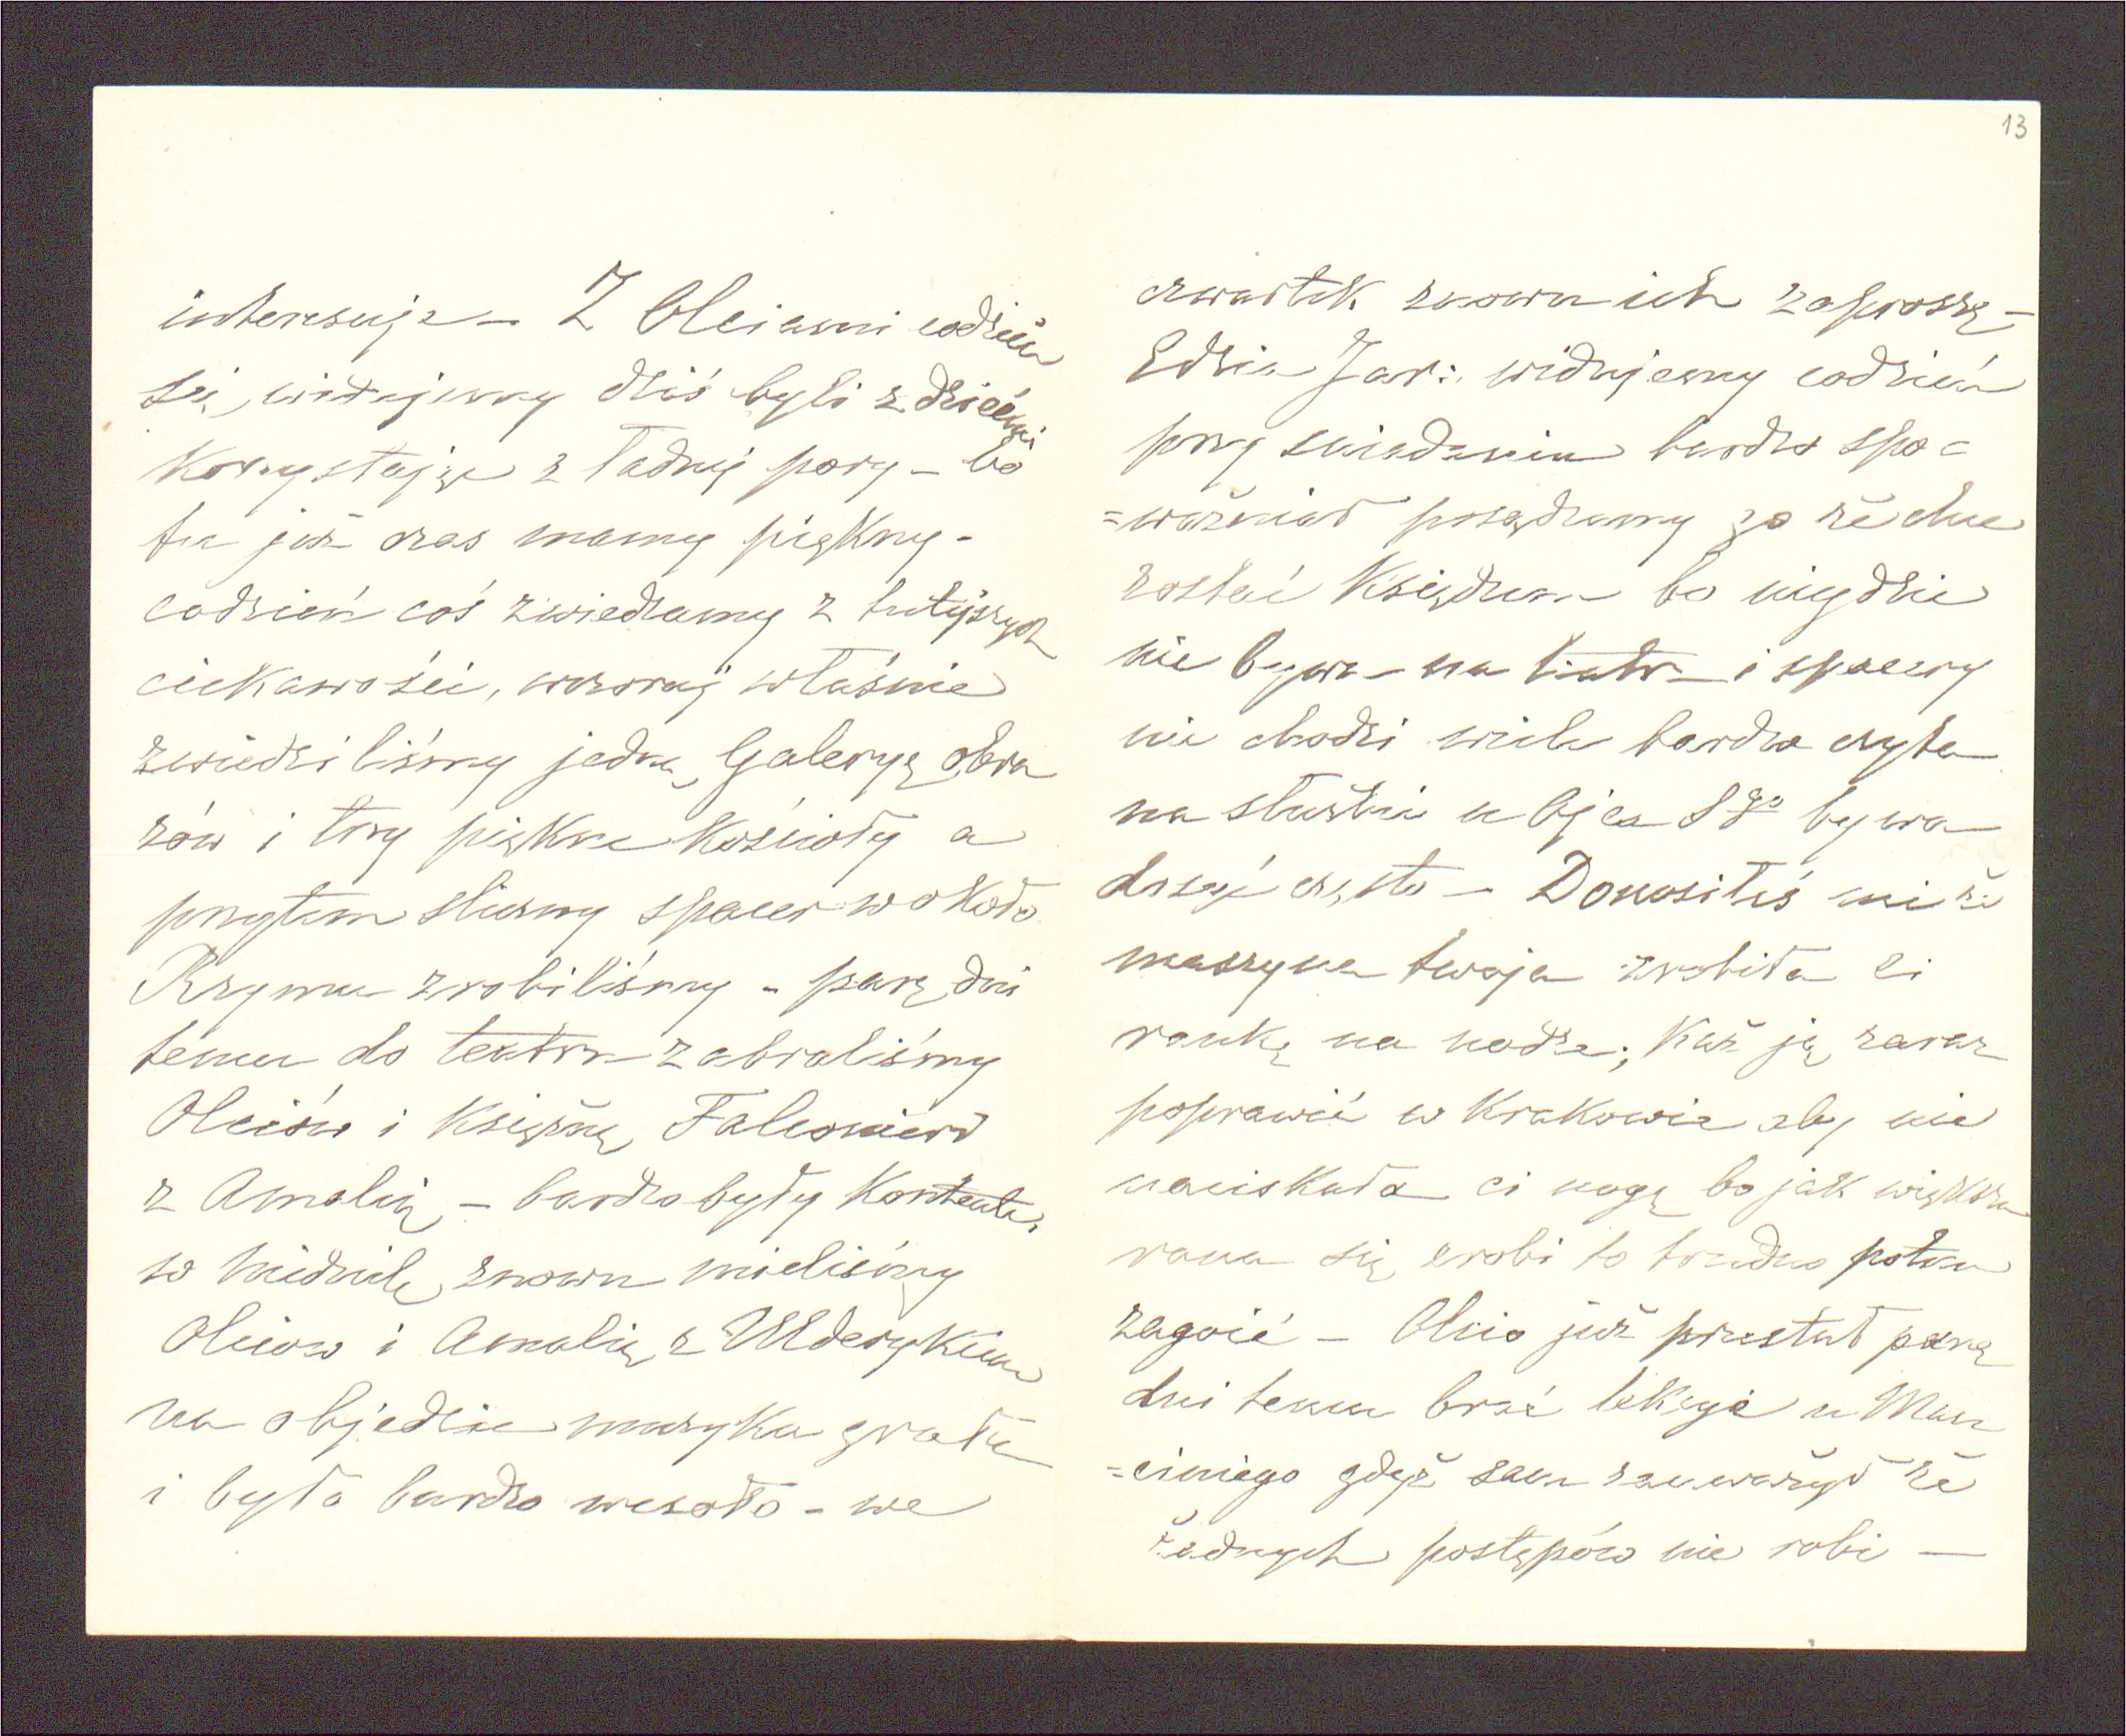 13
interesuje – Z Olciami codzień
się widujemy dziś byli z dziećmi
korzystając z ładnej pory – bo
tu już czas mamy piękny –
codzień coś zwiedzamy z tutejszych
ciekawości, wczoraj właśnie
zwiedziliśmy jedną Galeryę obra
zów i trzy piękne kościoły a
przytem śliczny spacer wokoło
Rzymu zrobiliśmy – parę dni
temu do teatru zabraliśmy
Olciów i Księżnę Falconieri
z Amalią – bardzo były kontente,
w niedzielę znowu mieliśmy
Olciow i Amalię z Ulderykiem
na objedzie muzyka grała
i było bardzo wesoło – we
czwartek znowu ich zaproszę –
Edzia Jar: widujemy codzień
przy śniadaniu bardzo spo=
=ważniał posądzamy go że chce
zostać Księdzem bo nigdzie
nie bywa – na teatr i spacery
nie chodzi wiele bardzo czyta
na słuzbie u Ojca Sgo bywa
dosyć często – Donosiłeś mi że
maszyna twoja zrobiła ci
rankę na nodze; każ ją zaraz
poprawić w Krakowie aby nie
naciskała ci nogę bo jak większa
rana się zrobi to trudno potem
zagoić – Olcio już przestał parę
dni temu brać lekcye u
=ciniego gdyż sam zauważył że
żadnych postępów nie robi –